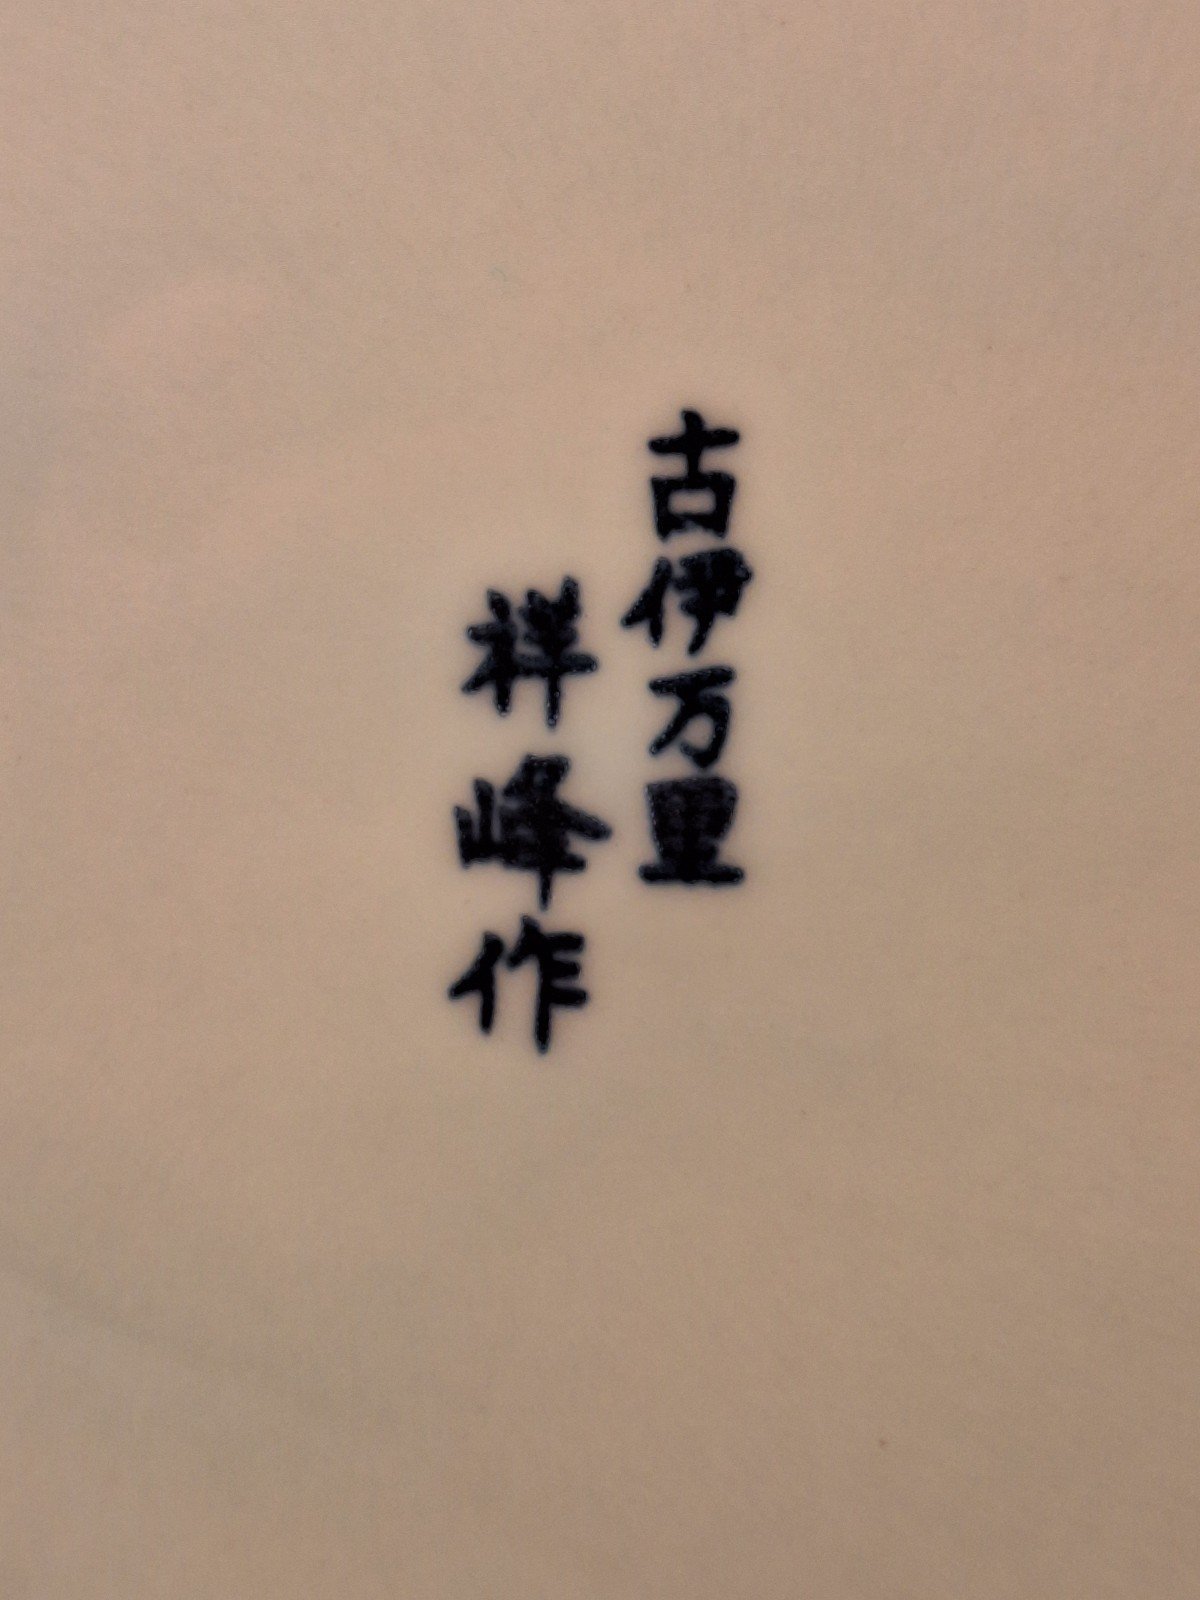 古伊万里
祥峰作